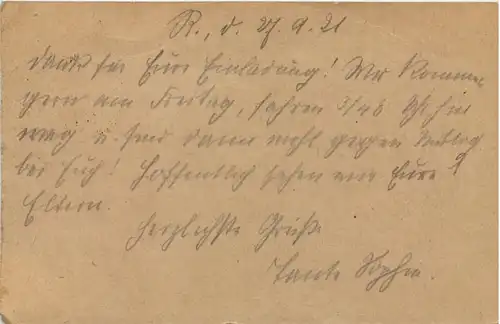 R., d. 27.9.21
Dank für Eure Einladung! Wir kommen
gern am Freitag, fahren 3/48 hin
weg u. sind dann wohl gegen Mittag
bei Euch! Hoffentlich sehen wir Eure
Eltern.
Herzlichste Grüße
Tante Sophie.